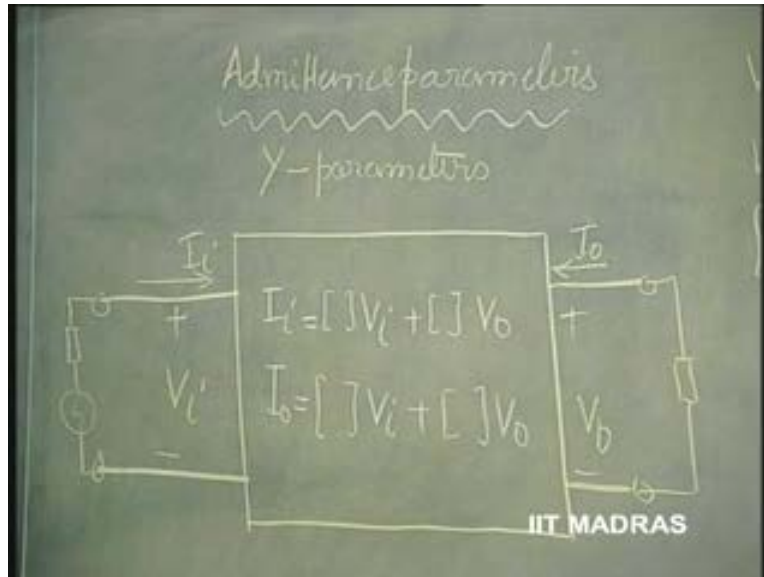 Admittance parameters
Y-parameters
Ii Io
Ii=[ ]Vi+[ ]Vo
+ +
Vi Io=[ ]Vi+[ ]Vo Vo
- -
IIT MADRAS